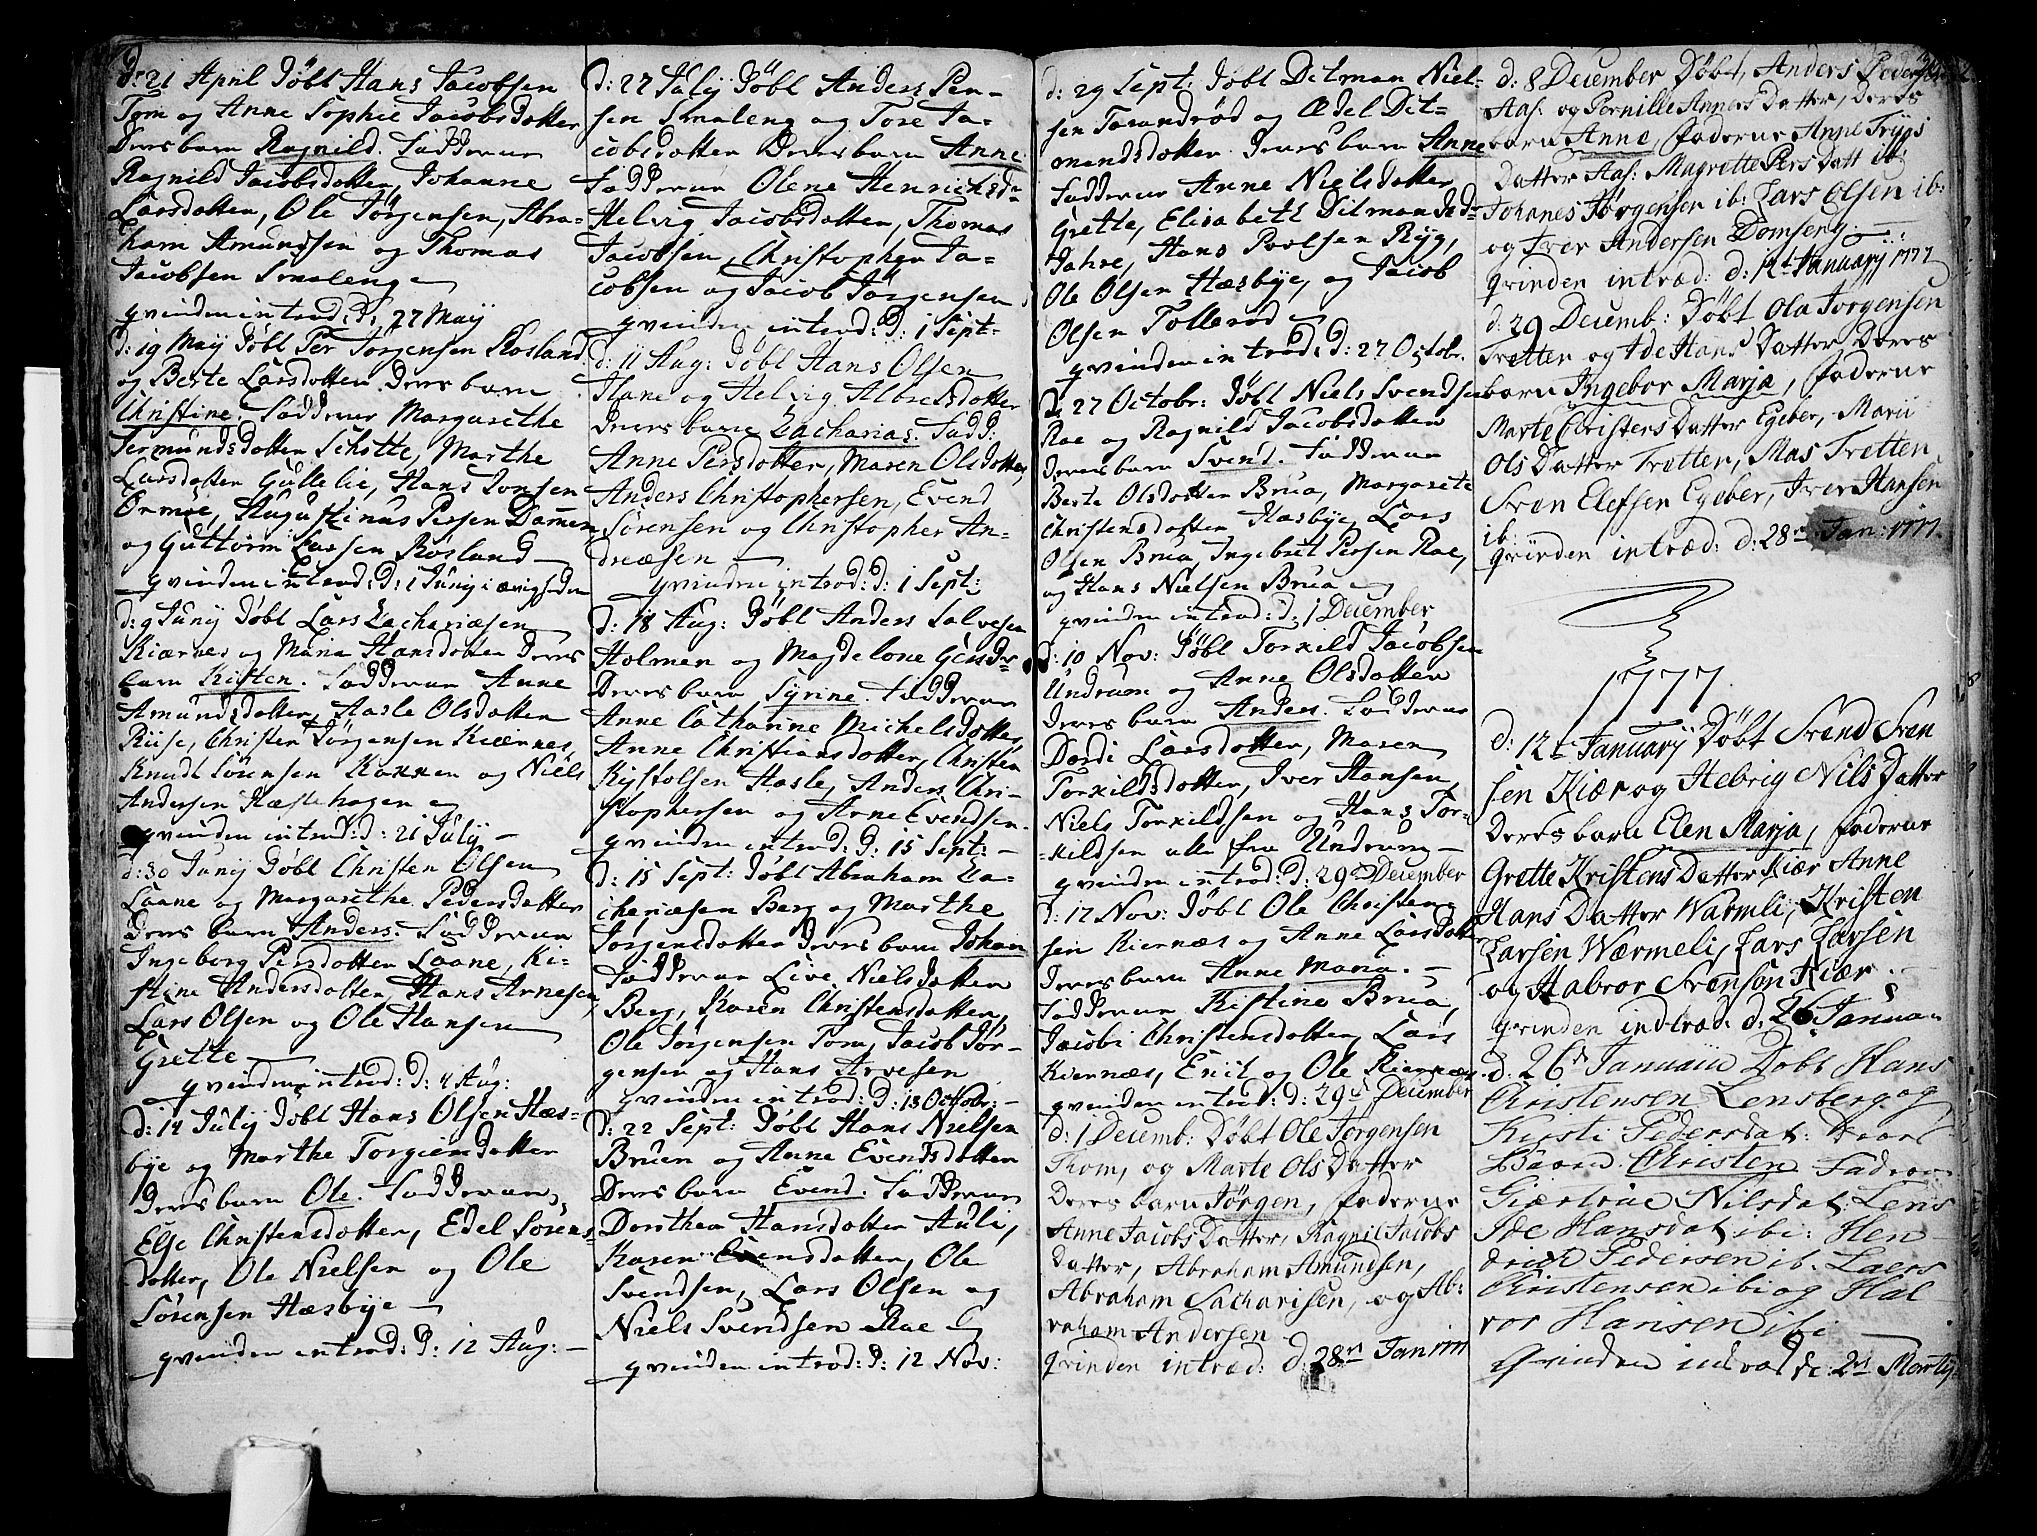 d: 21 April Döbt Hans Jacobsen
Tom og Anne Sophie Jacobsdotter
Deres barn Ragnild. Fadderne
Ragnild Jacobsdotter, Johanne
Larsdotter, Ole Jörgensen, Abra-
ham Amundsen og Thomas
Jacobsen Smaleng
qvinden introd: d: 27 Maij
d: 19 Maij Döbt Per Jörgensen Rosland
og Berte Larsdotter deres barn
Christine. Fadderne Margarethe
Larsdotter Gullelie, Hans Jonsen
Ormöe, Augustinus Persen Damen
og Guttorm Larsen Rosland
qvinden introd: d: 1 Junij
d: 9 Junij Döbt Lars Zachariæsen
Kiærnes og Maria Hansdotter Deres
barn Kisten. Fadderne Anne
Amundsdotter, Aasle Olsdotter
Riise, Christen Jörgensen Kiærnes,
Knudt Sörensen og Niels
Andersen Hæstehagen
qvinden introd: d: 21 Julij
d: 30 Junij Döbt Christen Olsen
Laane og Margarethe Pedersdotter
Deres barn Anders. Fadderne
Ingeberg Persdotter Laane, Ki-
stine Andersdotter, Hans Arnesen,
Lars Olsen og Ole Hansen
Grette
qvinden introd: d: 4 Aug:
d: 14 Julij Döbt Hans Olsen Hæs-
bye og Marthe Torgiersdotter
Deres barn Ole. Fadderne
Else Christensdotter, Edel Sörens-
dotter, Ole Nielsen og Ole
Sörensen Hæsbye
qvinden introd: d: 12 Aug:
d: 27 Julij Döbt Anders Per-
sen Smaleng og Tore Ja-
cobsdotter Deres barn Anne
Fadderne Olene Henrichsd-
Helvig Jacobsdotter, Thomas
Jacobsen, Christopher Ja-
cobsen og Jacob Jörgensen
qvinden introd: d: 1 Sept:
d: 11 Aug: Döbt Hans Olsen
Hane og Helvig Albretsdotter
Deres barn Zacharias. Fadd:
Anne Persdotter, Maren Olsdotter,
Anders Christophersen, Evend
Sörensen og Christopher An-
dreæsen
qvinden introd: d: 1 Sept:
d: 18 Aug: Döbt Anders Salvesen
Holmen og Magdelone
Deres barn Syrine. Fadderne
Anne Catharine Michelsdotter,
Anne Christiansdotter, Christen
Kystolsen Hasle, Anders Chri-
stophersen og Arne Evendsen.
qvinden introd: d: 15 Sept:
d: 15 Sept: Döbt Abraham Za-
chariæsen Berg og Marthe
Jörgensdotter deres barn Johan
Fadderne Live Nielsdotter
Berg, Karen Christensdotter,
Ole Jörgensen Tom, Jacob Jör-
gensen og Hans Arvesen
qvinden introd: d: 13 Octobr:
d: 22 Sept: Döbt Hans Nielsen
Bruen og Anne Evendsdotter
Deres barn Evend. Fadderne
Dorthea Hansdotter Auli,
Karen Evensdotter, Ole
Svendsen, Lars Olsen og
Niels Svendsen Rae
qvinden introd: d: 12 Nov:
d: 29 Sept: Döbt Ditman Niel-
sen Tarandröd og Edel Dit-
mandsdotter deres barn Anne
Fadderne Anne Nielsdotter
Grette, Elisabeth Ditmandsd-
Jahre, Hans Povlsen Ryg,
Ole Olsen Hæsbye, og Jacob
Olsen Tolleröd
qvinden introd: d: 27 Octobr.
d: 27 Octobr: Döbt Niels Svendsen
Rae og Ragnild Jacobsdotter
deres barn Svend. Fadderne
Berte Olsdotter Brua, Margarete
Christensdotter Hæsbye, Lars
Olsen Brua, Ingebret Persen Rae,
og Hans Nielsen Brua
qvinden introd: d: 1 December
d: 10 Nov: Döbt Torkild Jacobsen
Undrum og Anne Olsdotter
deres barn Anders. Fadderne
Dordi Larsdotter, Maren
Torkildsdotter, Iver Hansen,
Niels Torkildsen og Hans Tor-
-kildsen alle fra Undrum
qvinden introd: d: 29de December
d: 17 Nov: Döbt Ole Christen-
sen Kiernæs og Anne Larsdott
deres barn Anne Maria.
Fadderne Kistine Brua,
Jacobi Christensdotter, Lars
Kiernæs, Eric og Ole Kiernæs
qvinden introd: d: 29de December
d: 1 Decemb: Döbt Ole Jörgensen
Thom, og Marte Ols Datter
Deres barn Jörgen, faderne
Anne Jacobs Datter, Ragnil Jacobs
Datter, Abraham Amundsen,
Abraham Sacharisen, og Ab:
raham Andersen
qvinden intræd: d: 28de Jan 1777
d: 8 December Döbt, Anders Pedersen
Aas: og Pernille Anners Datter, Deres
barn Anne, faderne Anne Trygs
Datter Aas: Magrette Pers Datt ib:
Johanes Jörgensen ib: Lars Olsen ib:
og Iver Andersen Domseng
qvinden intræd: d: 12t January 1777
d: 29 Decemb: Döbt Ola Jorgensen
Tretten og Ide Hans Datter Deres
barn Ingebor Marja, faderne
Marte Cristens Datter Egeber, Marii
Ols Datter Tretten, Mas Tretten,
Sven Elefsen Egeber, Iver Hansen
ib:
qvinden intræd: d: 28de Jan: 1777.
1777.
d: 12te Januarij Döbt Svend Sven
sen Kiær og Hebrig Nils Datter
Deres barn Elen Marja, faderne
Grette Kristens Datter Kiær Anne
Hans Datter Wærmli, Kristen
Larsen Wærmeli, Lars Larsen
og Habror Svenson Kiær.
qvinden indtræd. d. 26 Januar
d. 26de Januarii Döbt Hans
Christensen Lensberg og
Kirsti Pedersdat: Deres
Baarn Christen Fadrene
Giærtrue Nilsdat Lens
Ide Hansdat ibi: Hen
drick Pedersen ib. Laers
Christensen ibi og Hal
vor Hansen ibi
Qvinden indræd de: 2de Martij